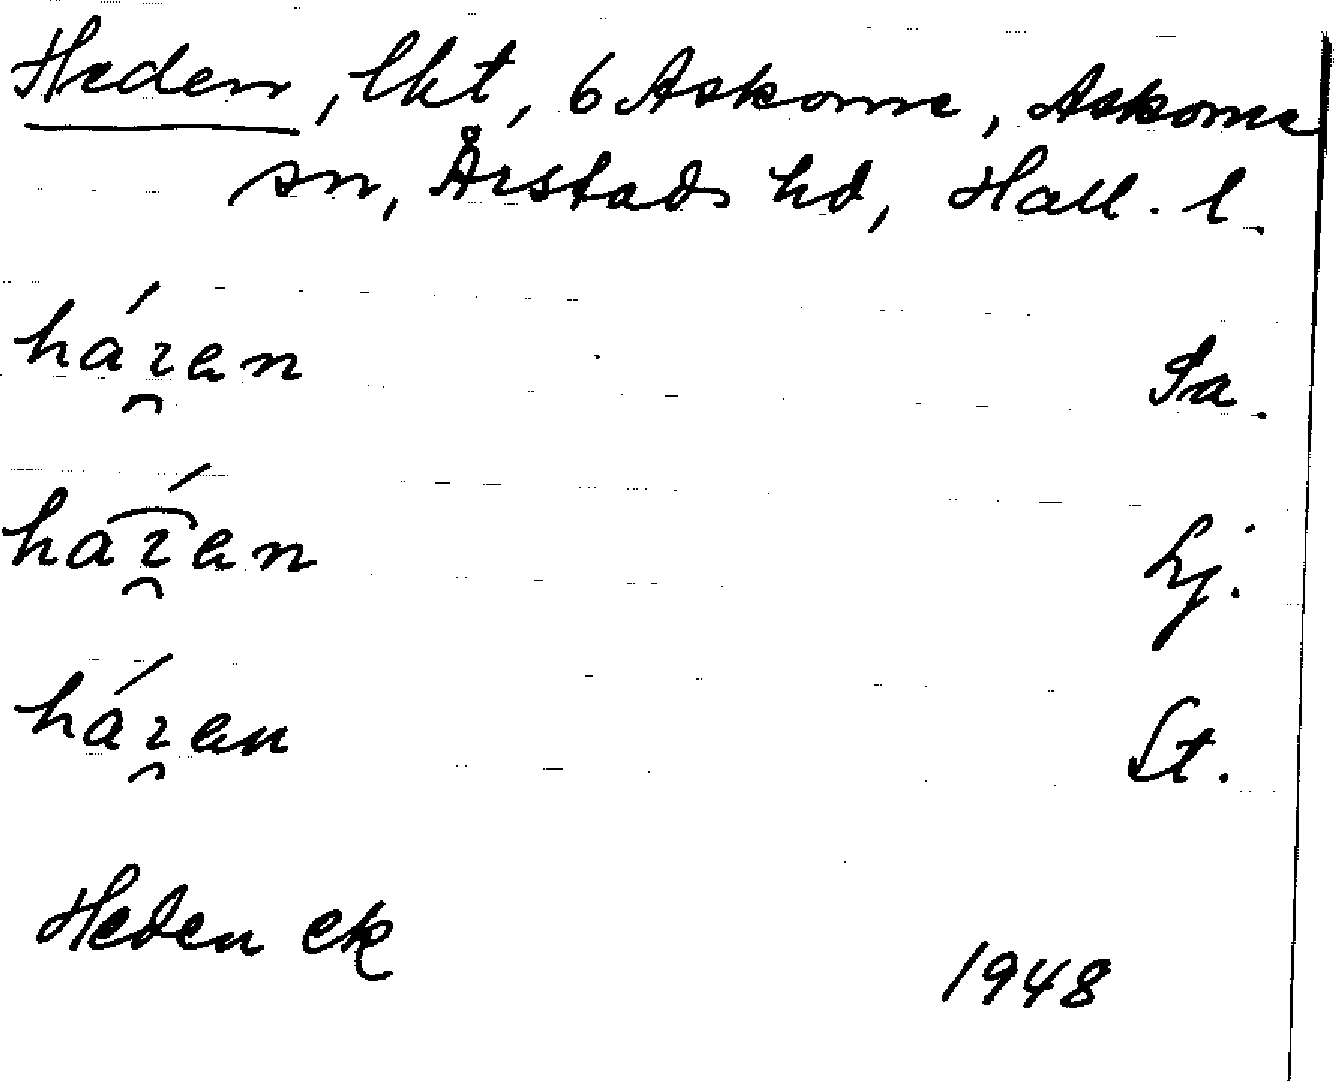 Heden, lht, 6 Askome, Askome
sn, Årstads hd, Hall. l.
háꝛ̯en Sa.
haꝛ̯́en Lj.
háꝛ̯en St.
Heden ek
1948